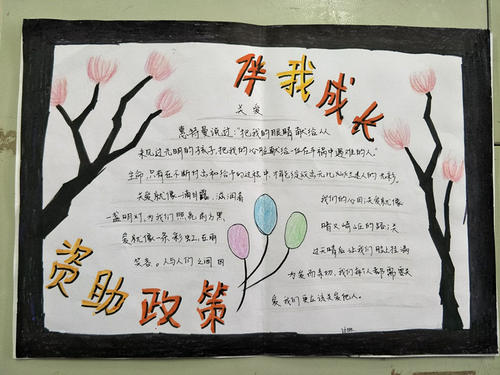 伴我成长
关爱
惠特曼说过:"把我的眼睛献给从
未见过光明的孩子,把我的心脏献给一位在车祸中遇难的人。"
生命,只有在不断付出和给予的过程中,才能绽放出
关爱就像一滴甘露,滋润着
一盏明灯,为我们照亮前方黑
爱就像一条彩虹,在雨
笑容。人与人们之间因
我们的心田;关爱就像
暗又崎岖的路;关
过天晴后让我们脸上挂满
为爱而亲切,我们每个人都需要关
爱,我们更应该关爱他人。
资助政策